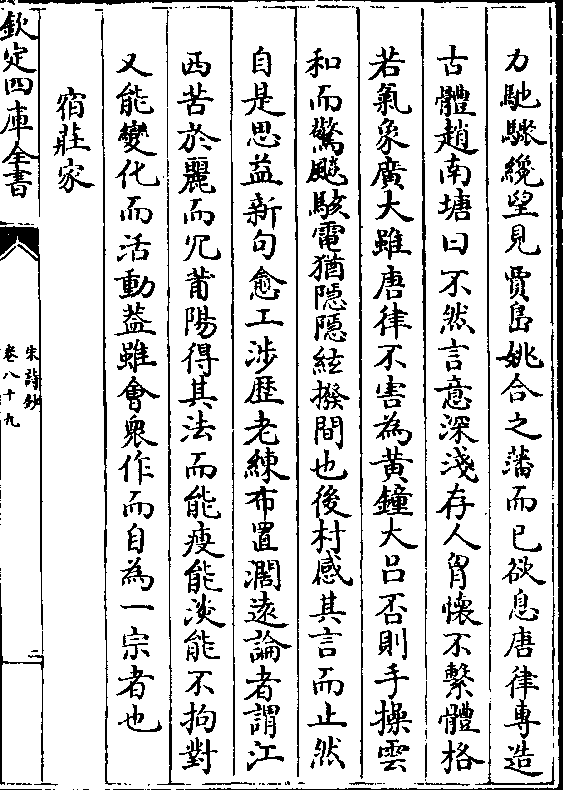 力馳驟纔望見賈島姚合之藩而已欲息唐律專造
古體趙南塘曰不然言意深淺存人胷懷不繫體格
若氣象廣大雖唐律不害為黄鐘大吕否則手操雲
和而驚飇駭電猶隠隠絃撥間也後村感其言而止然
自是思益新句愈工涉歴老練布置濶逺論者謂江
西苦於麗而冗莆陽得其法而能瘦能淡能不拘對
又能變化而活動葢雖會衆作而自為一宗者也
宿莊家
欽定四庫全書
宋詩鈔
卷八十九
二